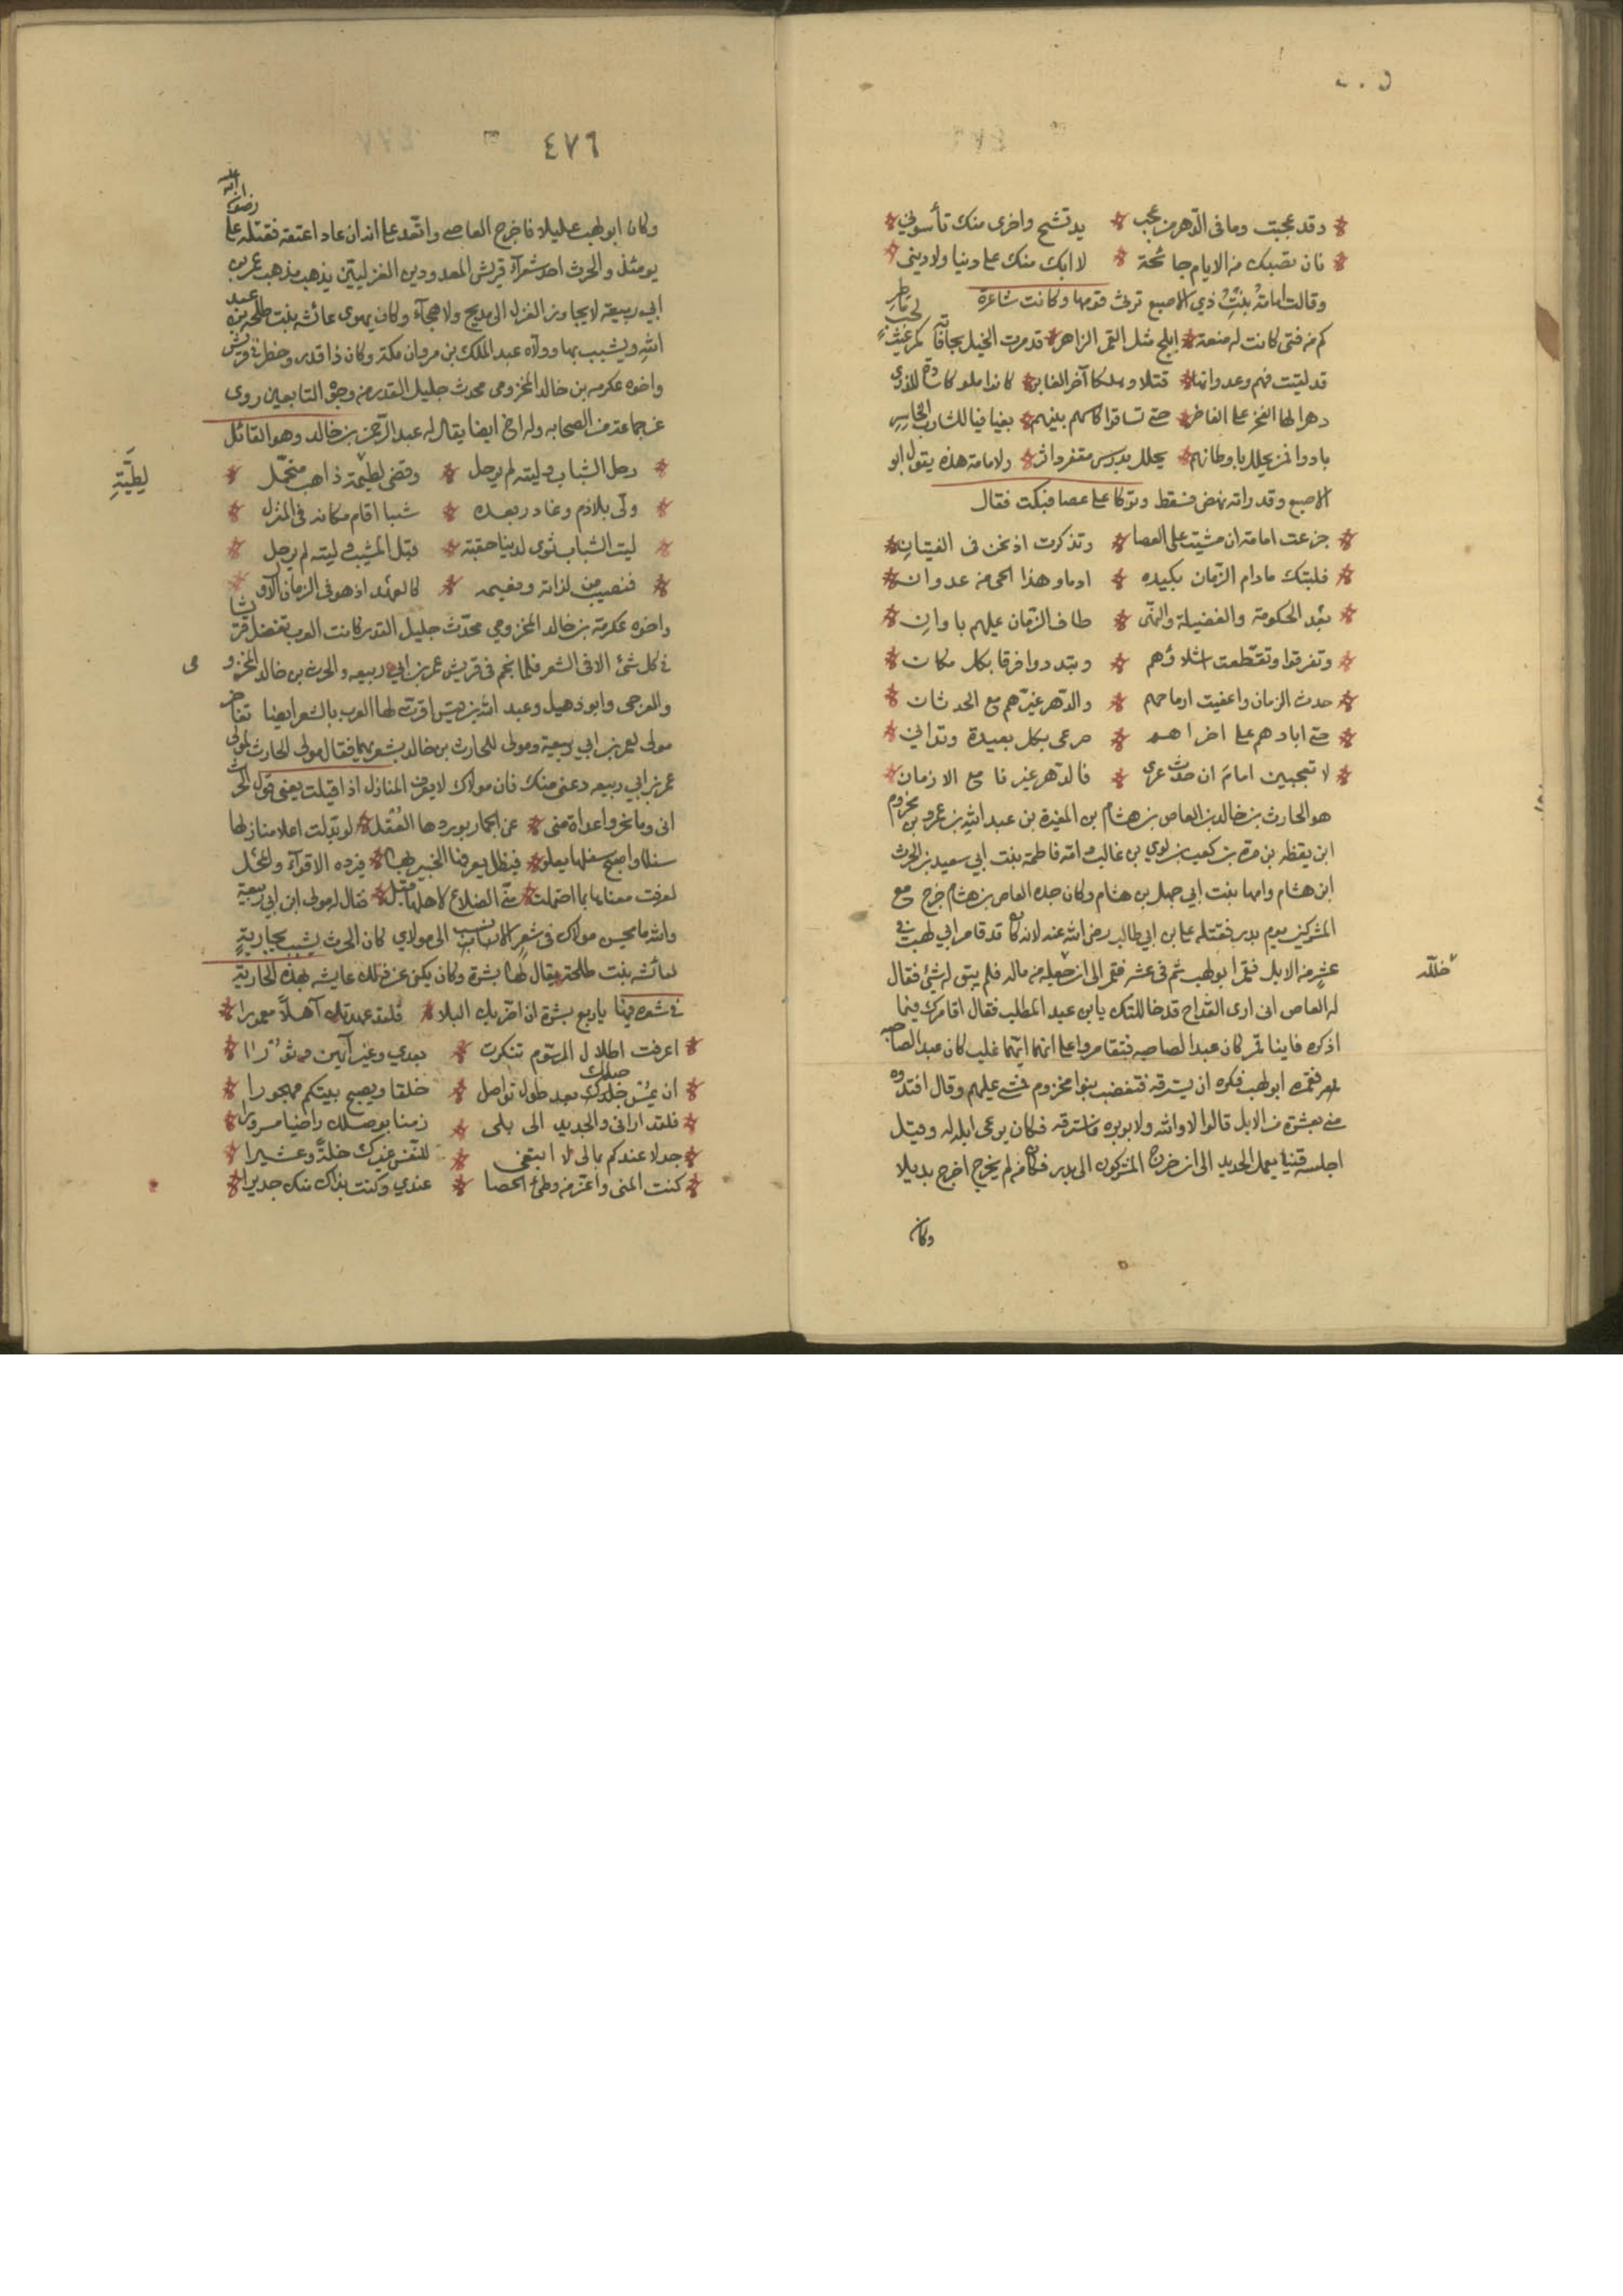 وقد عجبت وما في الدهر من عجب * يد تشح واخرى منك تأسوني
فان تصبك من الايام جائحة * لا ابك منك على دنيا ولا ديني
وقالت امامة بنت ذي الاصبع ترثي قومها وكانت شاعرة
كم من فتى كانت له منعة * ابلج مثل القمر الزاهر * قد مرت الخيل بحافاته كمر غيث لجب ماطر
قد لقيت فهم وعدوانها * قتلا وهلكا آخر الغابر * كانوا ملوكا سادة للذرى
دهرا لها الفخر على الفاخر * حتى تساقوا كاسهم بينهم * بغيا فيا للشارب الخاسر
بادوا فمن يحلل باوطانهم * يحلل برسم مقفر داثر * ولامامة هذه يقول ابو
الاصبع وقد راته نهض فسقط وتوكا على عصا فبكت فقال
جزعت امامة ان مشيت على العصا * وتذكرت اذ نحن في الفتيان
فلبتك مادام الزمان بكيده * ارما وهذا الحي من عدوان
بعد الحكومة والفضيلة والنهى * طاف الزمان عليهم باوان
وتفرقوا وتقطعت اشلاؤهم * وتبددوا فرقا بكل مكان
حدث الزمان واعفيت ارحامهم * والدهر غيرهم مع الحدثان
حتى ابادهم على اخراهم * صرعى بكل بعيدة وتداني
لا تعجبين امام ان حدث عرى * فالدهر غيرنا مع الازمان
هو الحارث بن خالد بن العاص بن هشام بن المغيرة بن عبد الله بن عمرو بن مخزوم
ابن يقظه بن مرة بن كعب بن لوي بن غالب وامه فاطمة بنت ابي سعيد بن الحرث
ابن هشام وامها بنت ابي جهل بن هشام وكان جده العاص بن هشام خرج مع
المشركين يوم بدر فقتله علي بن ابي طالب رضي الله عنه لانه كان قد قامر ابي لهب في
عشر من الابل فقمره ابو لهب ثم في عشر فقمره الى ان خلعه من ماله فلم يبق له شئ فقال
له العاص اني ارى القداح قد حالفتك يا ابن عبد المطلب فقال اقامرك فيما
اذكره فاينا قمر كان عبدا لصاحبه فتقامروا على انهما ايهما غلب كان عبدا لصاحبه
فقمره ابو لهب فكره ان يسترقه فتغضب بنوا مخزوم فمشى عليهم وقال افتدوه
مني بعشرة من الابل قالوا لا والله ولا بوبره فاسترقه فكان يرعى ابله له وقيل
اجلسه قينا يعمل الحديد الى ان خرج المشركون الى بدر فكان من لم يخرج اخرج بديلا
وكان
٤٧٦
وكان ابو لهب عليلا فاخرج العاصي واتعد على انه ان عاد اعتقه فقتله علي رضوان الله عليه
يومئذ والحرث احد شعرآء قريش المعدودين الغزليين يذهب مذهب عمر بن
ابي ربيعة لا يجاوز الغزل الى مديح ولا هجآء وكان يهوى عائشه بنت طلحه بن عبيد
الله ويشبب بها وولاه عبد الملك بن مروان مكة وكان ذا قدر وخطر في قريش
واخوه عكرمه بن خالد المخزومي محدث جليل القدر من وجوه التابعين روى
عن جماعة من الصحابه وله اخ ايضا يقال له عبد الرحمن بن خالد وهو القائل
رحل الشباب وليته لم يرحل * وقضى لطيمة ذاهب متحمل *
لِطِيَّةِ
ولى بلا ذم وغادر بعده * شيبا اقام مكانه في المنزل
ليت الشباب ثوى لدينا حقبة * قبل المشيب وليته لم يرحل
فنصيب من لذاته ونعيمه * كالعهد اذ هو في الزمان الاول
واخوه عكرمة بن خالد المخزومي محدث جليل القدر كانت العرب تفضل قريشا
في كل شئ الا في الشعر فلما نجم في قريش عمر بن ابي ربيعه والحرث بن خالد المخزومي
والعرجي وابو دهبل وعبد الله بن قيس اقرت لها العرب بالشعر ايضا تفاخر
مولى لعمر بن ابي ربيعة ومولى للحارث بن خالد بشعريهما فقال مولى الحارث لمولى
عمر بن ابي ربيعه دعني منك فان مولاك لا يعرف المنازل اذا قيلت يعني قول الحرث
اني وما نحروا غداة منى * عن الجمار يوردها العُقل * لو بدلت اعلا منازلها
سفلا واصبح سفلها يعلو * فيظل يعرفنا الخبير بها * فيرده الاقوآء والمحل
لعرفت مغناها بما احتملت * مني الضلاع لاهلها قبل * فقال له مولى ابن ابي ربيعة
والله ما يحسن مولاك في شعر الا نسب الى مولاي كان الحرث يشبب بجاريةٍ
لعائشه بنت طلحة يقال لها بشرة وكان يكنى عن ذلك عايشه بهذه الجارية
في شعره فمنها ياربع بشرة ان اضر بك البلا * فلقد عهدتك آهلاً معمورا *
اعرفت اطلال الرسوم تنكرت * بعدي وغير آيهن دثورا
ان يمس حبلك بعد طول تواصل * خلقا ويصبح بيتكم مهجورا
فلقد اراني والجديد الى بلى * زمنا بوصلك راضيا مسرورا
جدلا عندكم بمالي لا ابتغي * للنفس غيرك خلةً وعشيرا
كنت المنى واعز من وطئ الحصا * عندي وكنت بذاك منك جديرا